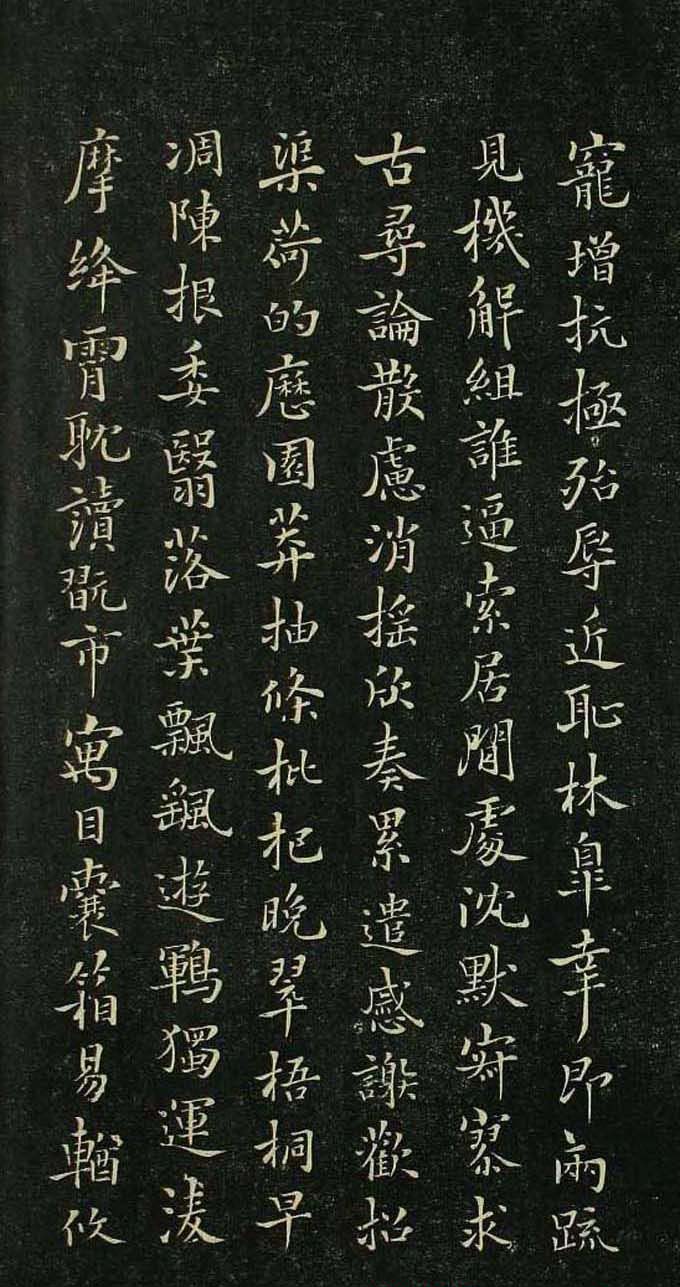 寵增抗極殆辱近恥林皐幸即兩疏
見機解組誰逼索居閒處沈默寂寥求
古尋論散慮逍搖欣奏累遣慼謝歡招
渠荷的歷園莽抽條枇杷晚翠梧桐早
凋陳根委翳落葉飄颻遊鵾獨運淩
摩絳霄耽讀翫市寓目囊箱易輶攸